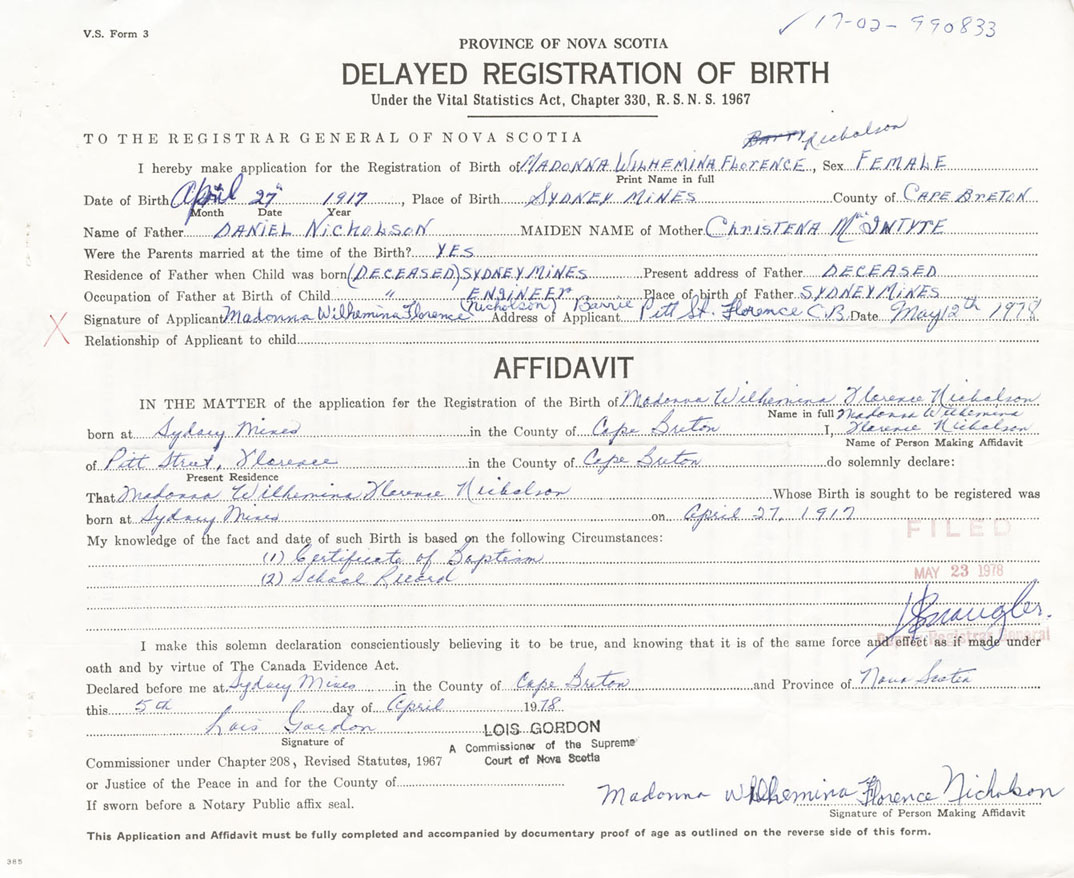 V.S. Form 3
✓ 17-02-990833
PROVINCE OF NOVA SCOTIA
DELAYED REGISTRATION OF BIRTH
Under the Vital Statistics Act, Chapter 330, R. S. N. S. 1967
TO THE REGISTRAR GENERAL OF NOVA SCOTIA
Nicholson
I hereby make application for the Registration of Birth of MADONNA WILHEMINA FLORENCE, Sex FEMALE
Print Name in full
Date of Birth April 27th 1917, Place of Birth SYDNEY MINES County of CAPE BRETON
Month Date Year
Name of Father DANIEL NICHOLSON MAIDEN NAME of Mother CHRISTENA Mac INTYTE
Were the Parents married at the time of the Birth? YES
Residence of Father when Child was born (DECEASED) SYDNEY MINES Present address of Father DECEASED
Occupation of Father at Birth of Child " ENGINEER Place of birth of Father SYDNEY MINES
Signature of Applicant Madonna Wilhemina Florence (Nicholson) Barrie Address of Applicant Pitt St. Florence C.B. Date May 12th 1978
Relationship of Applicant to child
AFFIDAVIT
IN THE MATTER of the application for the Registration of the Birth of Madonna Wilhemina Florence Nicholson
Name in full Madonna Wilhemina
born at Sydney Mines in the County of Cape Breton I, Florence Nicholson
Name of Person Making Affidavit
of Pitt Street, Florence in the County of Cape Breton do solemnly declare:
Present Residence
That Madonna Wilhemina Florence Nicholson Whose Birth is sought to be registered was
born at Sydney Mines on April 27, 1917
FILED
My knowledge of the fact and date of such Birth is based on the following Circumstances:
(1) Certificate of Baptism
(2) School Record
MAY 23 1978
I make this solemn declaration conscientiously believing it to be true, and knowing that it is of the same force and effect as if made under
oath and by virtue of The Canada Evidence Act.
Declared before me at Sydney Mines in the County of Cape Breton and Province of Nova Scotia
this 5th day of April 1978
Lois Gordon
LOIS GORDON
Signature of
A Commissioner of the Supreme
Court of Nova Scotia
Commissioner under Chapter 208, Revised Statutes, 1967
or Justice of the Peace in and for the County of
Madonna Wilhemina Florence Nicholson
If sworn before a Notary Public affix seal.
Signature of Person Making Affidavit
This Application and Affidavit must be fully completed and accompanied by documentary proof of age as outlined on the reverse side of this form.
365